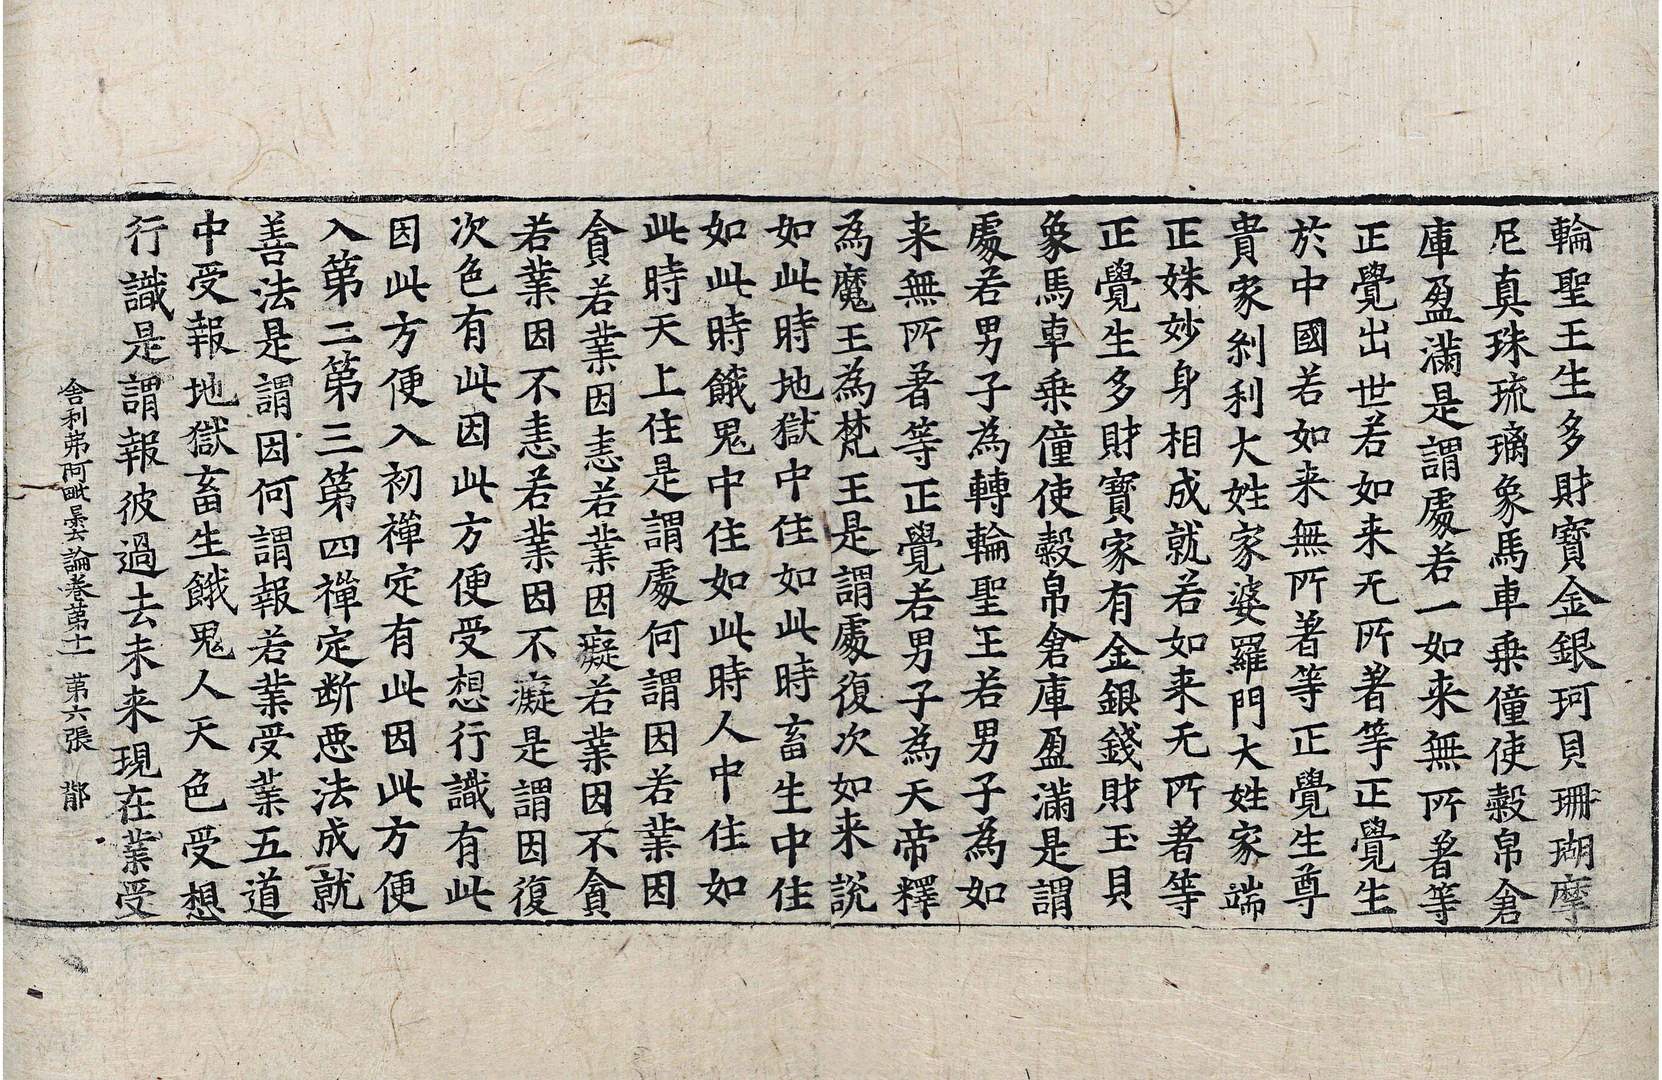 輪聖王生多財寶金銀珂貝珊瑚摩
尼真珠琉璃象馬車乘僮使穀帛倉
庫盈滿是謂處若一如来無所著等
正覺出世若如来无所著等正覺生
於中國若如来無所著等正覺生尊
貴家刹利大姓家婆羅門大姓家端
正姝妙身相成就若如来无所著等
正覺生多財寶家有金銀錢財玉貝
象馬車乘僮使穀帛倉庫盈滿是謂
處若男子為轉輪聖王若男子為如
来無所著等正覺若男子為天帝釋
為魔王為梵王是謂處復次如来說
如此時地獄中住如此時畜生中住
如此時餓鬼中住如此時人中住如
此時天上住是謂處何謂因若業因
貪若業因恚若業因癡若業因不貪
若業因不恚若業因不癡是謂因復
次色有此因此方便受想行識有此
因此方便入初禪定有此因此方便
入第二第三第四禪定断惡法成就
善法是謂因何謂報若業受業五道
中受報地獄畜生餓鬼人天色受想
行識是謂報彼過去未来現在業受
舍利弗阿毗曇論卷第十一 第六張